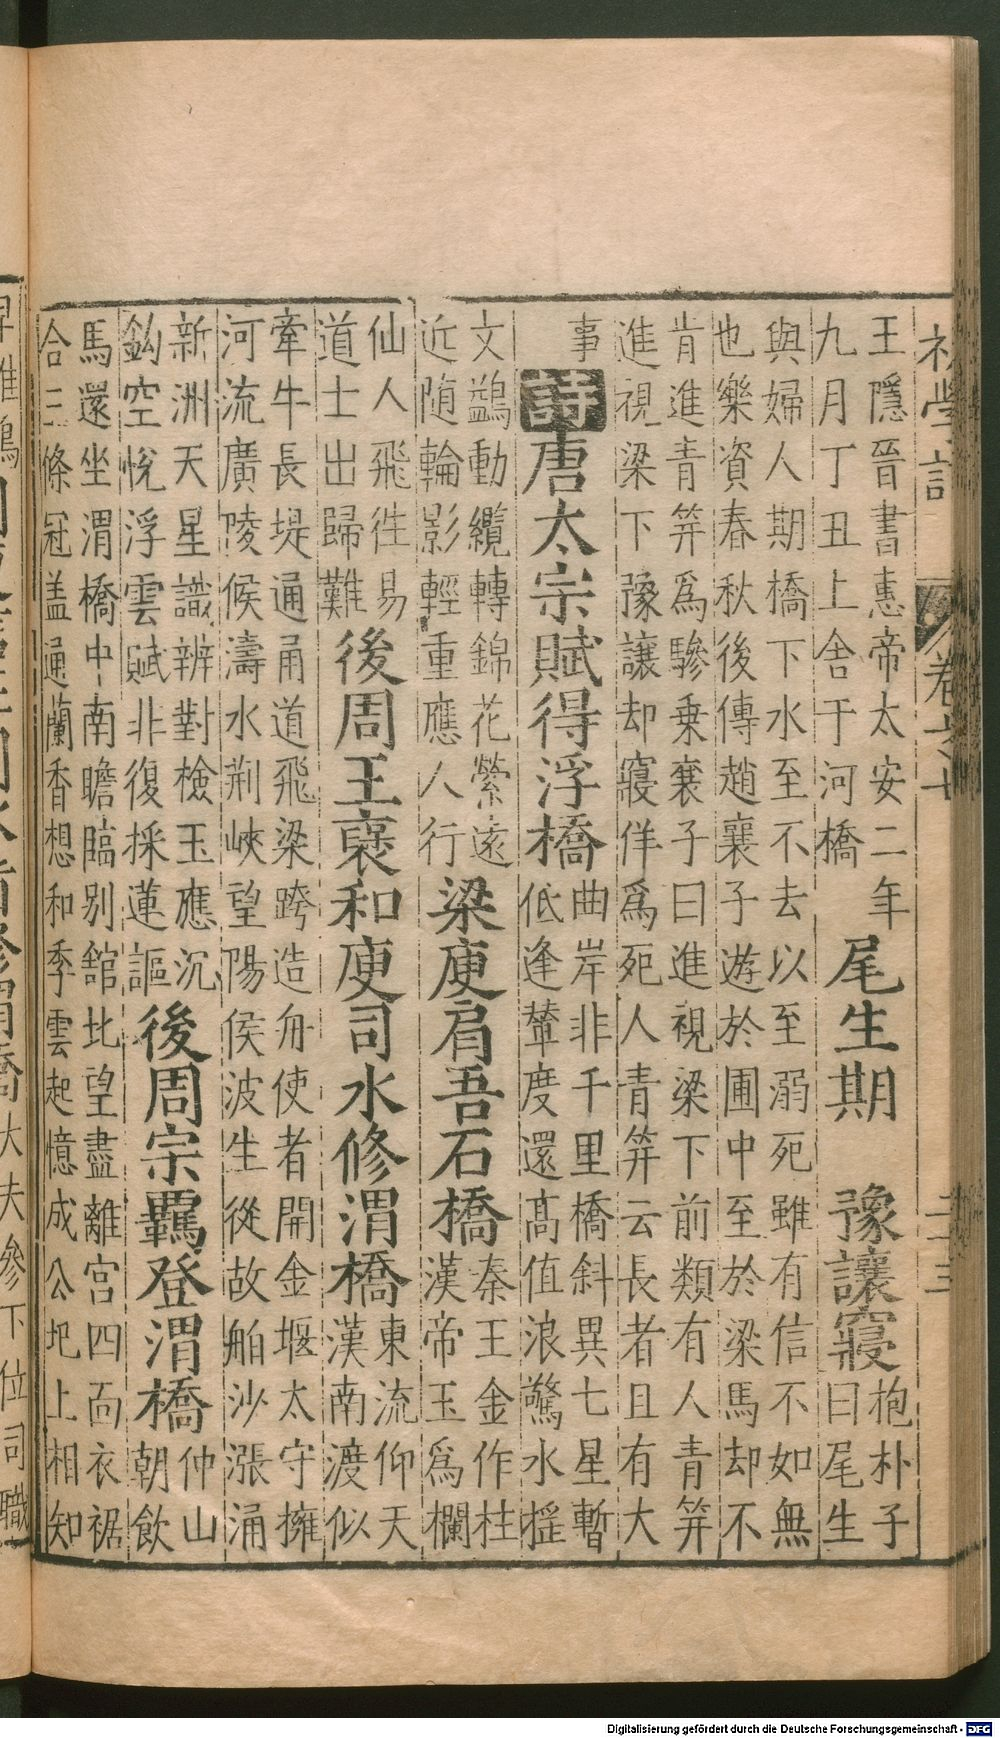 初學記 卷之七 二十三
王隱晉書惠帝太安二年
九月丁丑上舍于河橋
尾生期 豫讓寢
抱朴子
曰尾生
與婦人期橋下水至不去以至溺死雖有信不如無
也樂資春秋後傳趙襄子遊於圃中至於梁馬却不
肯進青笄爲驂乗襄子曰進視梁下前類有人青笄
進視梁下豫讓却寢佯爲死人青笄云長者且有大
事
詩唐太宗賦得浮橋
曲岸非千里橋斜異七星暫
低逢輦度還髙值浪驚水揺
文鷁動纜轉錦花縈遠
近随輪影輕重應人行
梁庾肩吾石橋
秦王金作柱
漢帝玉爲欄
仙人飛徃易
道士出歸難
後周王襃和庾司水修渭橋
東流仰天
漢南渡似
牽牛長堤通甬道飛梁跨造舟使者開金堰太守擁
河流廣陵候濤水荊峽望陽侯波生從故舶沙漲涌
新洲天星識辨對檢玉應沉
鈎空悅浮雲賦非復採蓮謳
後周宗羈登渭橋
仲山
朝飲
馬還坐渭橋中南瞻臨别舘北望盡離宫四面衣裾
合三條冠盖通蘭香想和季雲起憶成公圯上相知
大夫參下位司職
Digitalisierung gefördert durch die Deutsche Forschungsgemeinschaft - DFG